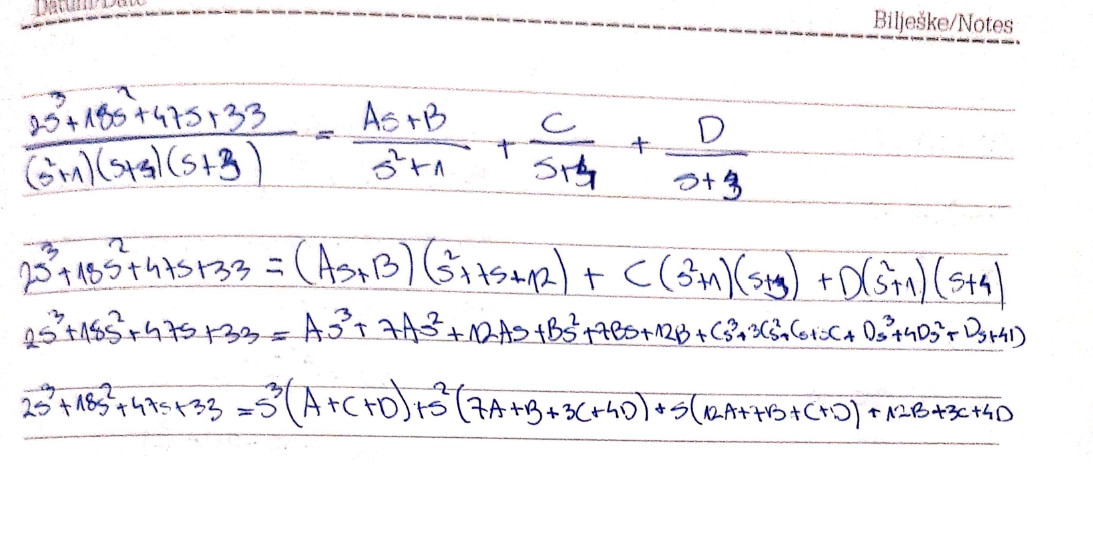 Datum/Date
Bilješke/Notes
(2s³+18s²+47s+33)/((s²+1)(s+4)(s+3)) = (As+B)/(s²+1) + C/(s+4) + D/(s+3)
2s³+18s²+47s+33 = (As+B)(s²+7s+12) + C(s²+1)(s+3) + D(s²+1)(s+4)
2s³+18s²+47s+33 = As³+7As²+12As+Bs²+7Bs+12B+Cs³+3Cs²+Cs+3C+Ds³+4Ds²+Ds+4D
2s³+18s²+47s+33 = s³(A+C+D)+s²(7A+B+3C+4D)+s(12A+7B+C+D)+12B+3C+4D